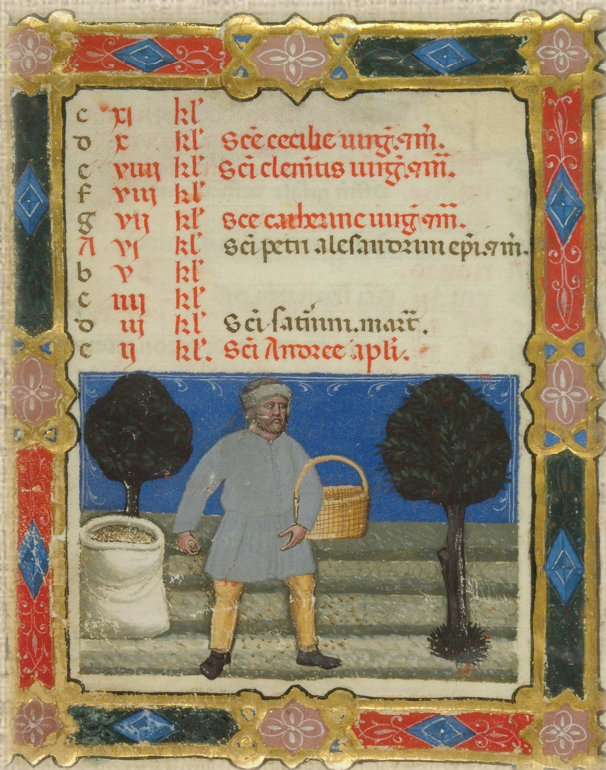 c xj kl'
d x kl' Sce cecilie uirg. et m̄.
e viiij kl' Sci clem̄tis uirg. et m̄.
f viij kl'
g vij kl' Sce catherine uirg. et m̄.
A vj kl' Sci petri alesandrini epi. et m̄.
b v kl'
c iiij kl'
d iij kl' Sci saturni. mart̄.
e ij kl'. Sci Andree apl̄i.